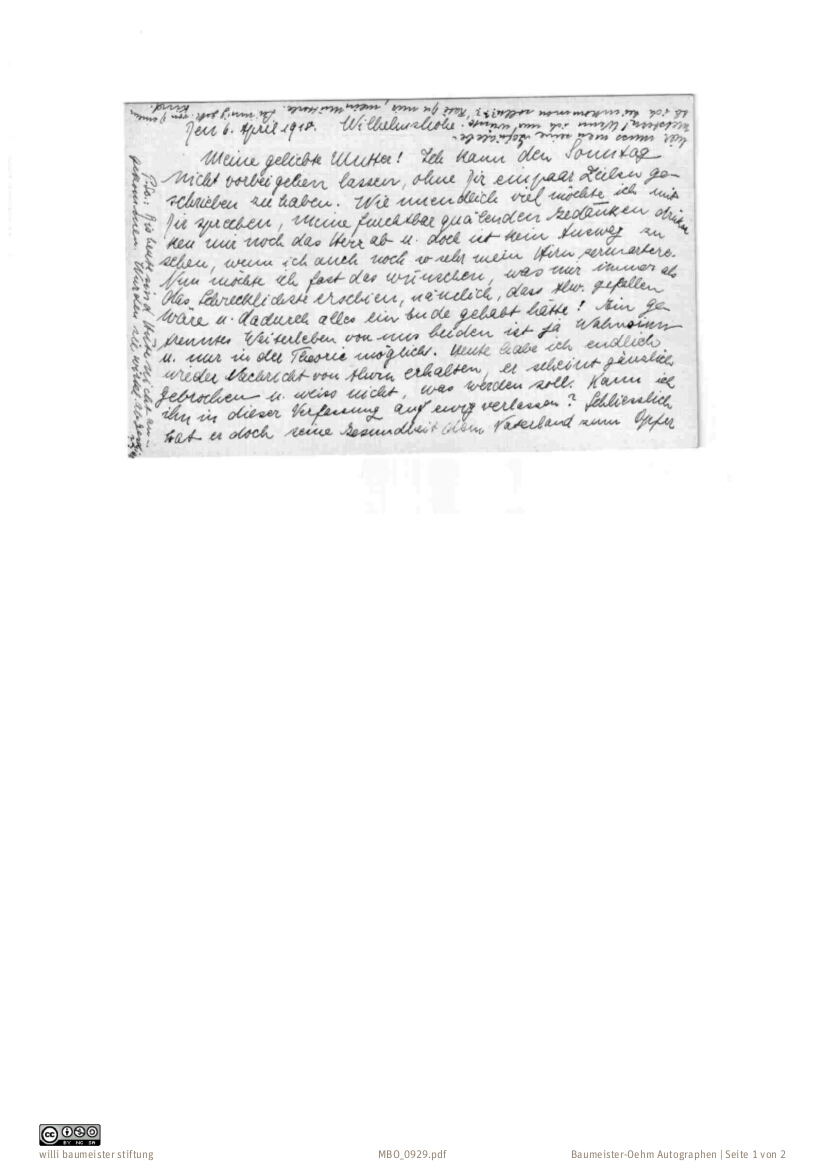 Den 6. April 1918. Wilhelmshöhe.
Meine geliebte Mutter! Ich kann den Sonntag
nicht vorbei gehen lassen, ohne Dir ein paar Zeilen ge-
schrieben zu haben. Wie unendlich viel möchte ich mit
Dir sprechen, meine furchtbar quälenden Gedanken drük-
ken mir noch das Herz ab u. doch ist kein Ausweg zu
sehen, wenn ich auch noch so sehr mein Hirn zermartere.
Nun möchte ich fast das wünschen, was mir immer als
das Schrecklichste erschien, nämlich, dass Hw. gefallen
wäre u. dadurch alles ein Ende gehabt hätte! Ein ge-
trenntes Weiterleben von uns beiden ist ja Wahnsinn
u. nur in der Theorie möglich. Heute habe ich endlich
wieder Nachricht von Hwn erhalten, er scheint gänzlich
gebrochen u. weiss nicht, was werden soll. Kann ich
ihn in dieser Verfassung auf ewig verlassen? Schliesslich
hat er doch seine Gesundheit dem Vaterland zum Opfer
hier muss man seine
Wenn ich nur wüsste,
ob ich heimkommen sollte?? Rate Du mir, mein Mutterle.
Kind.
Bis heute sind Hüte nicht an-
gekommen. Wurden sie
willi baumeister stiftung
MBO_0929.pdf
Baumeister-Oehm Autographen | Seite 1 von 2
CC BY NC SA